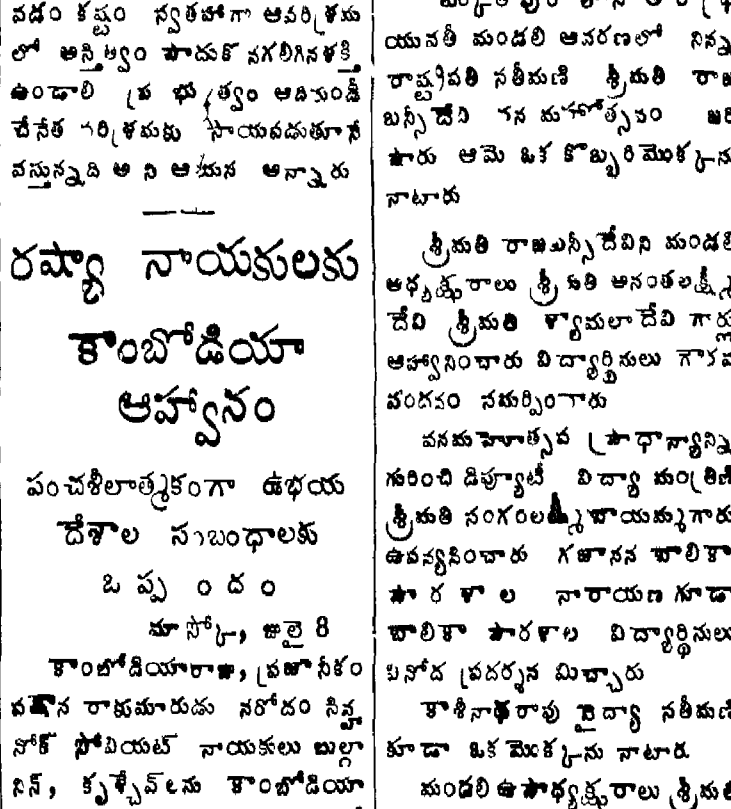 వడం కష్టం స్వతహాగా ఆపరిశ్రమ
లో అస్తిత్వం పొదుకొ నగలిగినశక్తి
ఉండాలి ప్ర భుత్వం ఆదినుండీ
చేనేత పరిశ్రమకు సాయపడుతూనే
వస్తున్నది అ ని ఆ యన అన్నారు
రష్యా నాయకులకు
కాంబోడియా
ఆహ్వానం
పంచశీలాత్మకంగా ఉభయ
దేశాల సంబంధాలకు
ఒ ప్ప ం ద ం
మాస్కో, జులై 8
కాంబోడియారాజు, ప్రజానీకం
రాకుమారుడు నరోదం సిన్హ
నోక్ సోవియట్ నాయకులు బుల్గా
నిన్, కృశ్చేవ్‌లను కాంబోడియా
యువతీ మండలి ఆవరణలో నిన్న
రాష్ట్రపతి సతీమణి శ్రీమతి రాజ
బన్సీదేవి వన మహోత్సవం జరి
పారు ఆమె ఒక కొబ్బరిమొక్కను
నాటారు
శ్రీమతి రాజబన్సీదేవిని మండలి
అధ్యక్షురాలు శ్రీమతి అనంతలక్ష్మీ
దేవి శ్రీమతి శ్యామలాదేవి గార్లు
ఆహ్వానించారు విద్యార్థినులు గౌరవ
వందనం సమర్పించారు
వనమహోత్సవ ప్రాధాన్యాన్ని
గురించి డిప్యూటీ విద్యా మంత్రిణి
శ్రీమతి సంగంలక్ష్మీబాయమ్మగారు
ఉపన్యసించారు గజానన బాలికా
పా ఠ శా ల నారాయణగూడా
బాలికా పాఠశాల విద్యార్థినులు
వినోద ప్రదర్శన మిచ్చారు
కాశీనాథరావు వైద్యా సతీమణి
కూడా ఒక మొక్కను నాటారు
మండలి ఉపాధ్యక్షురాలు శ్రీమతి